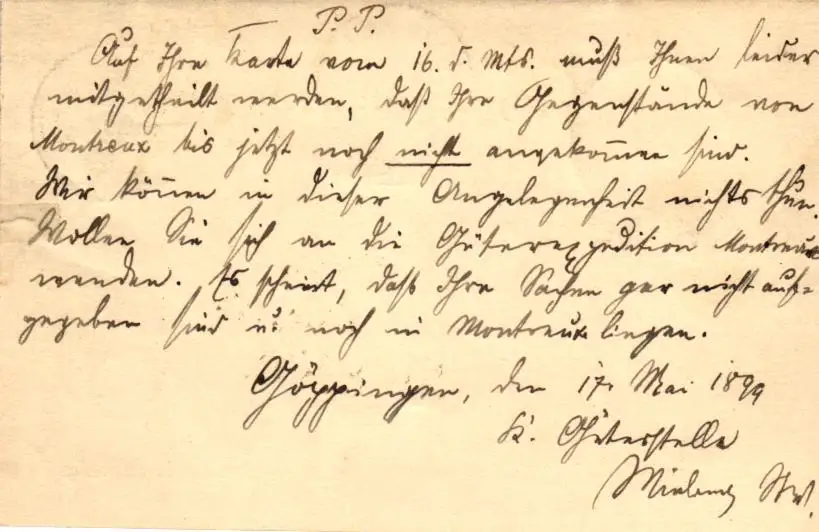 P. P.
Auf Ihre Karte vom 16. d. Mts. muß Ihnen leider
mitgetheilt werden, daß Ihre Gegenstände von
Montreux bis jetzt noch nicht angekommen sind.
Wir können in dieser Angelegenheit nichts thun.
Wollen Sie sich an die Güterexpedition Montreux
wenden. Es scheint, daß Ihre Sachen gar nicht auf=
gegeben sind u. noch in Montreux liegen.
Göppingen, den 17. Mai 1899
K. Güterstelle